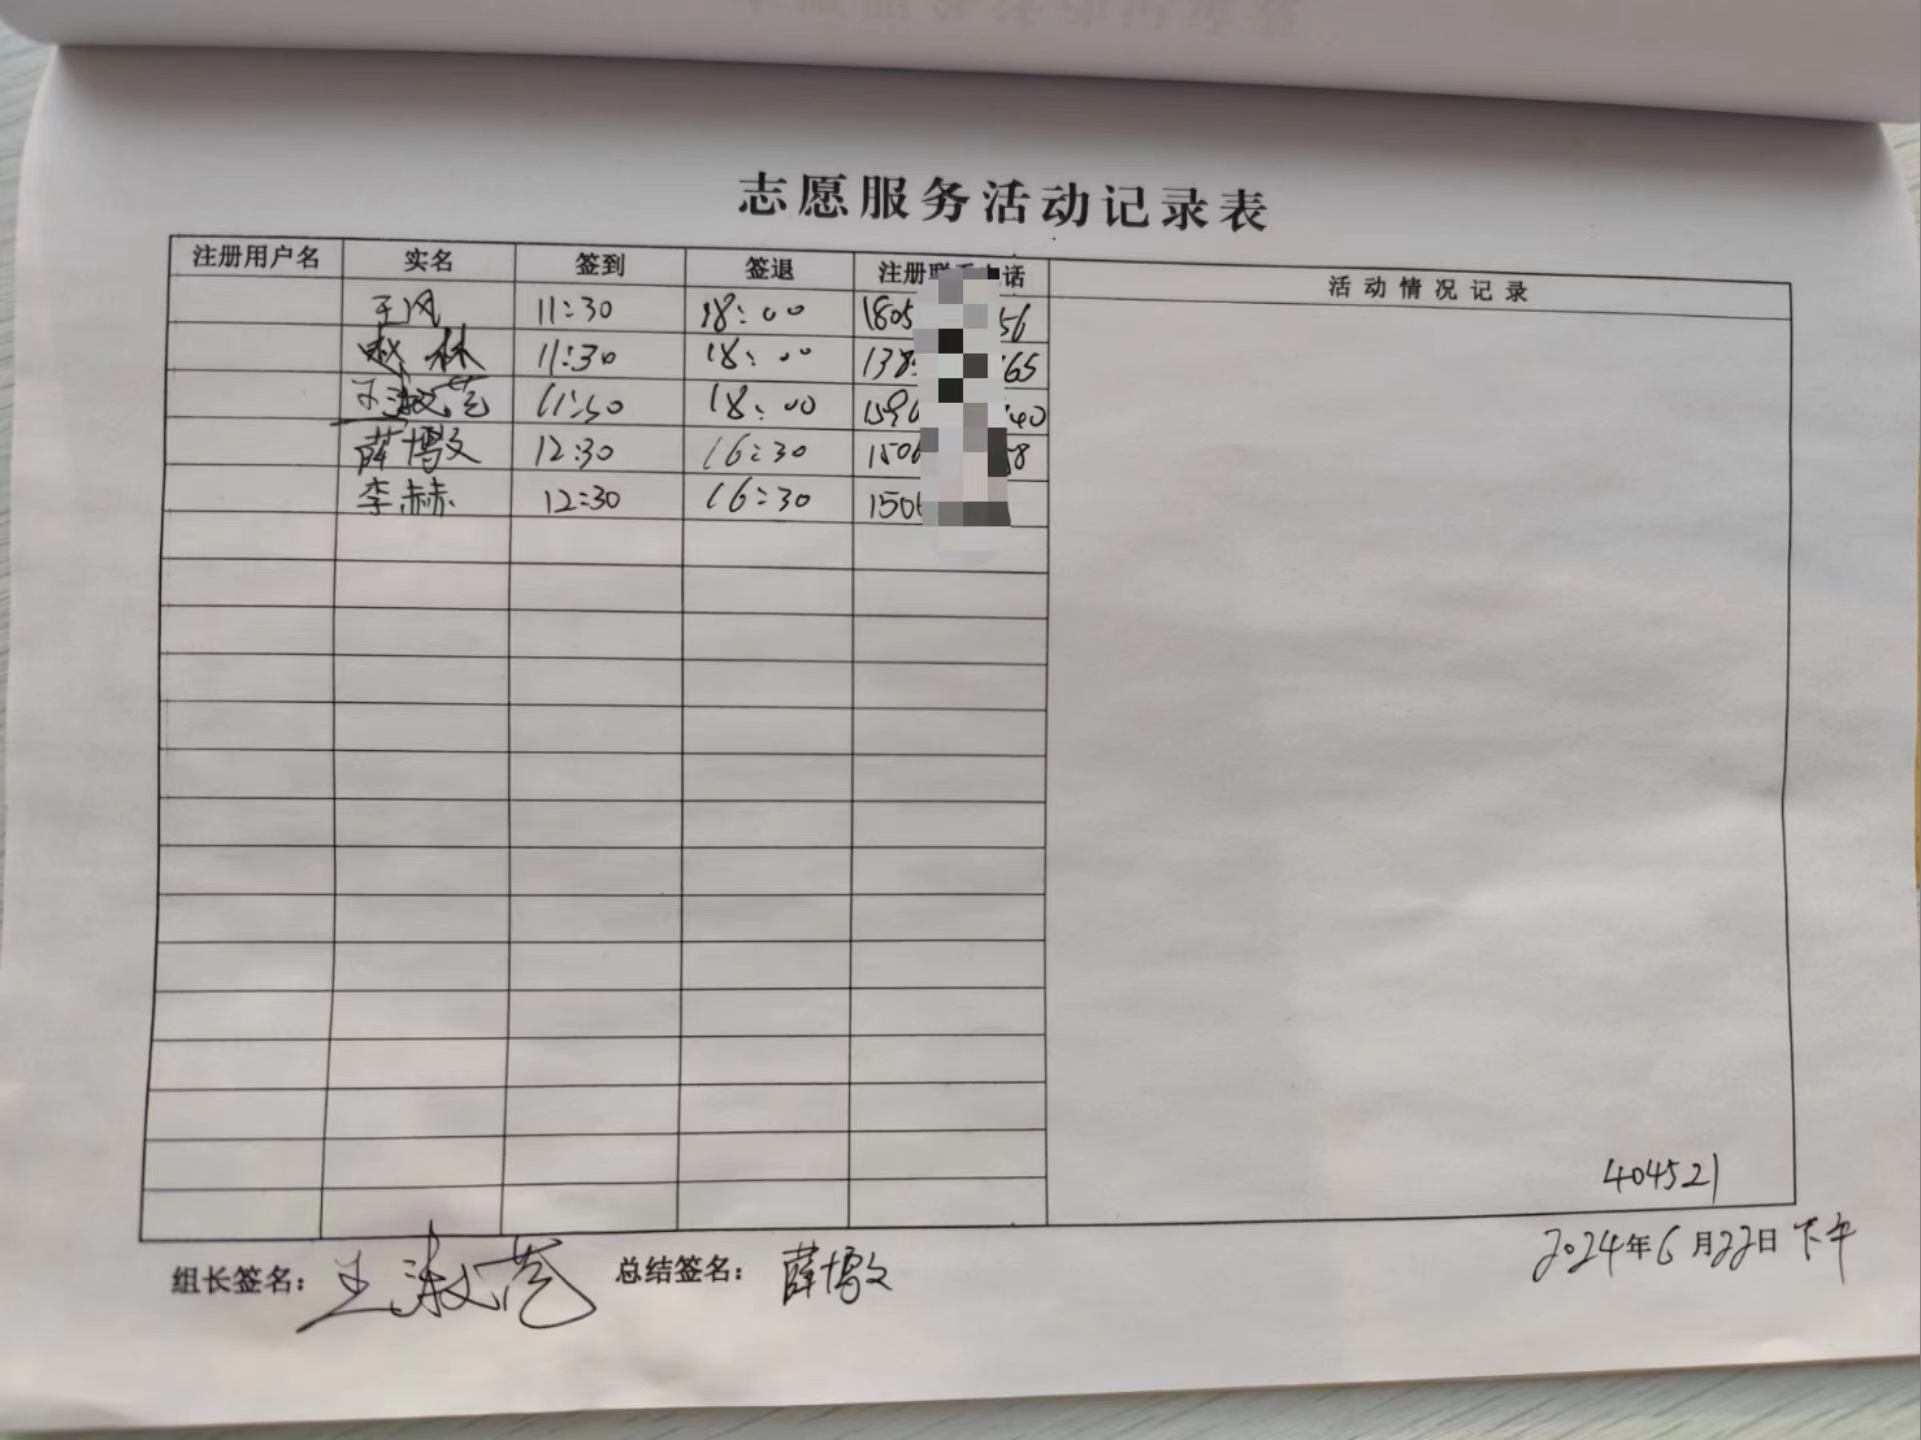 志愿服务活动记录表
注册用户名 实名 签到 签退 注册联系电话 活动情况记录
王风 11:30 18:00 1805 56
赵林 11:30 18:00 138 65
王淑范 11:30 18:00 159 40
薛博文 12:30 16:30 150 58
李赫 12:30 16:30 150
404521
2024年6月22日下午
组长签名：王淑范 总结签名：薛博文